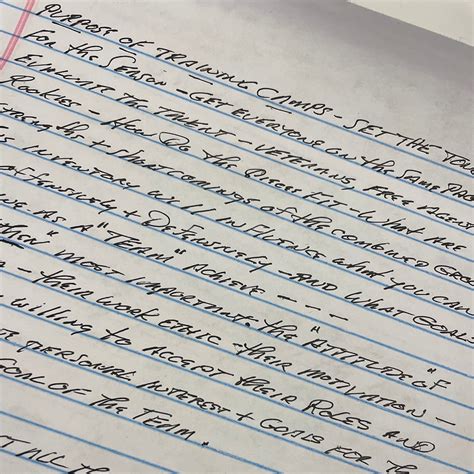 PURPOSE OF TRAINING CAMPS - SET THE
FOR the SEASON - GET EVERYONE ON the SAME
THE TALENT - VETERANS, FREE
ROOKIES - HOW DO the PIECES FIT - WHAT ARE
+ SHORTCOMINGS OF the COMBINED
INVENTORY WILL INFLUENCE WHAT YOU CAN
OFFENSIVELY + DEFENSIVELY - AND WHAT GOALS
AS A "TEAM" ACHIEVE - - -
MOST IMPORTANT. the "ATTITUDE" OF
- their WORK ETHIC - their MOTIVATION -
WILLING TO ACCEPT their ROLES AND
PERSONAL INTEREST + GOALS FOR the
OF the TEAM"
ALL